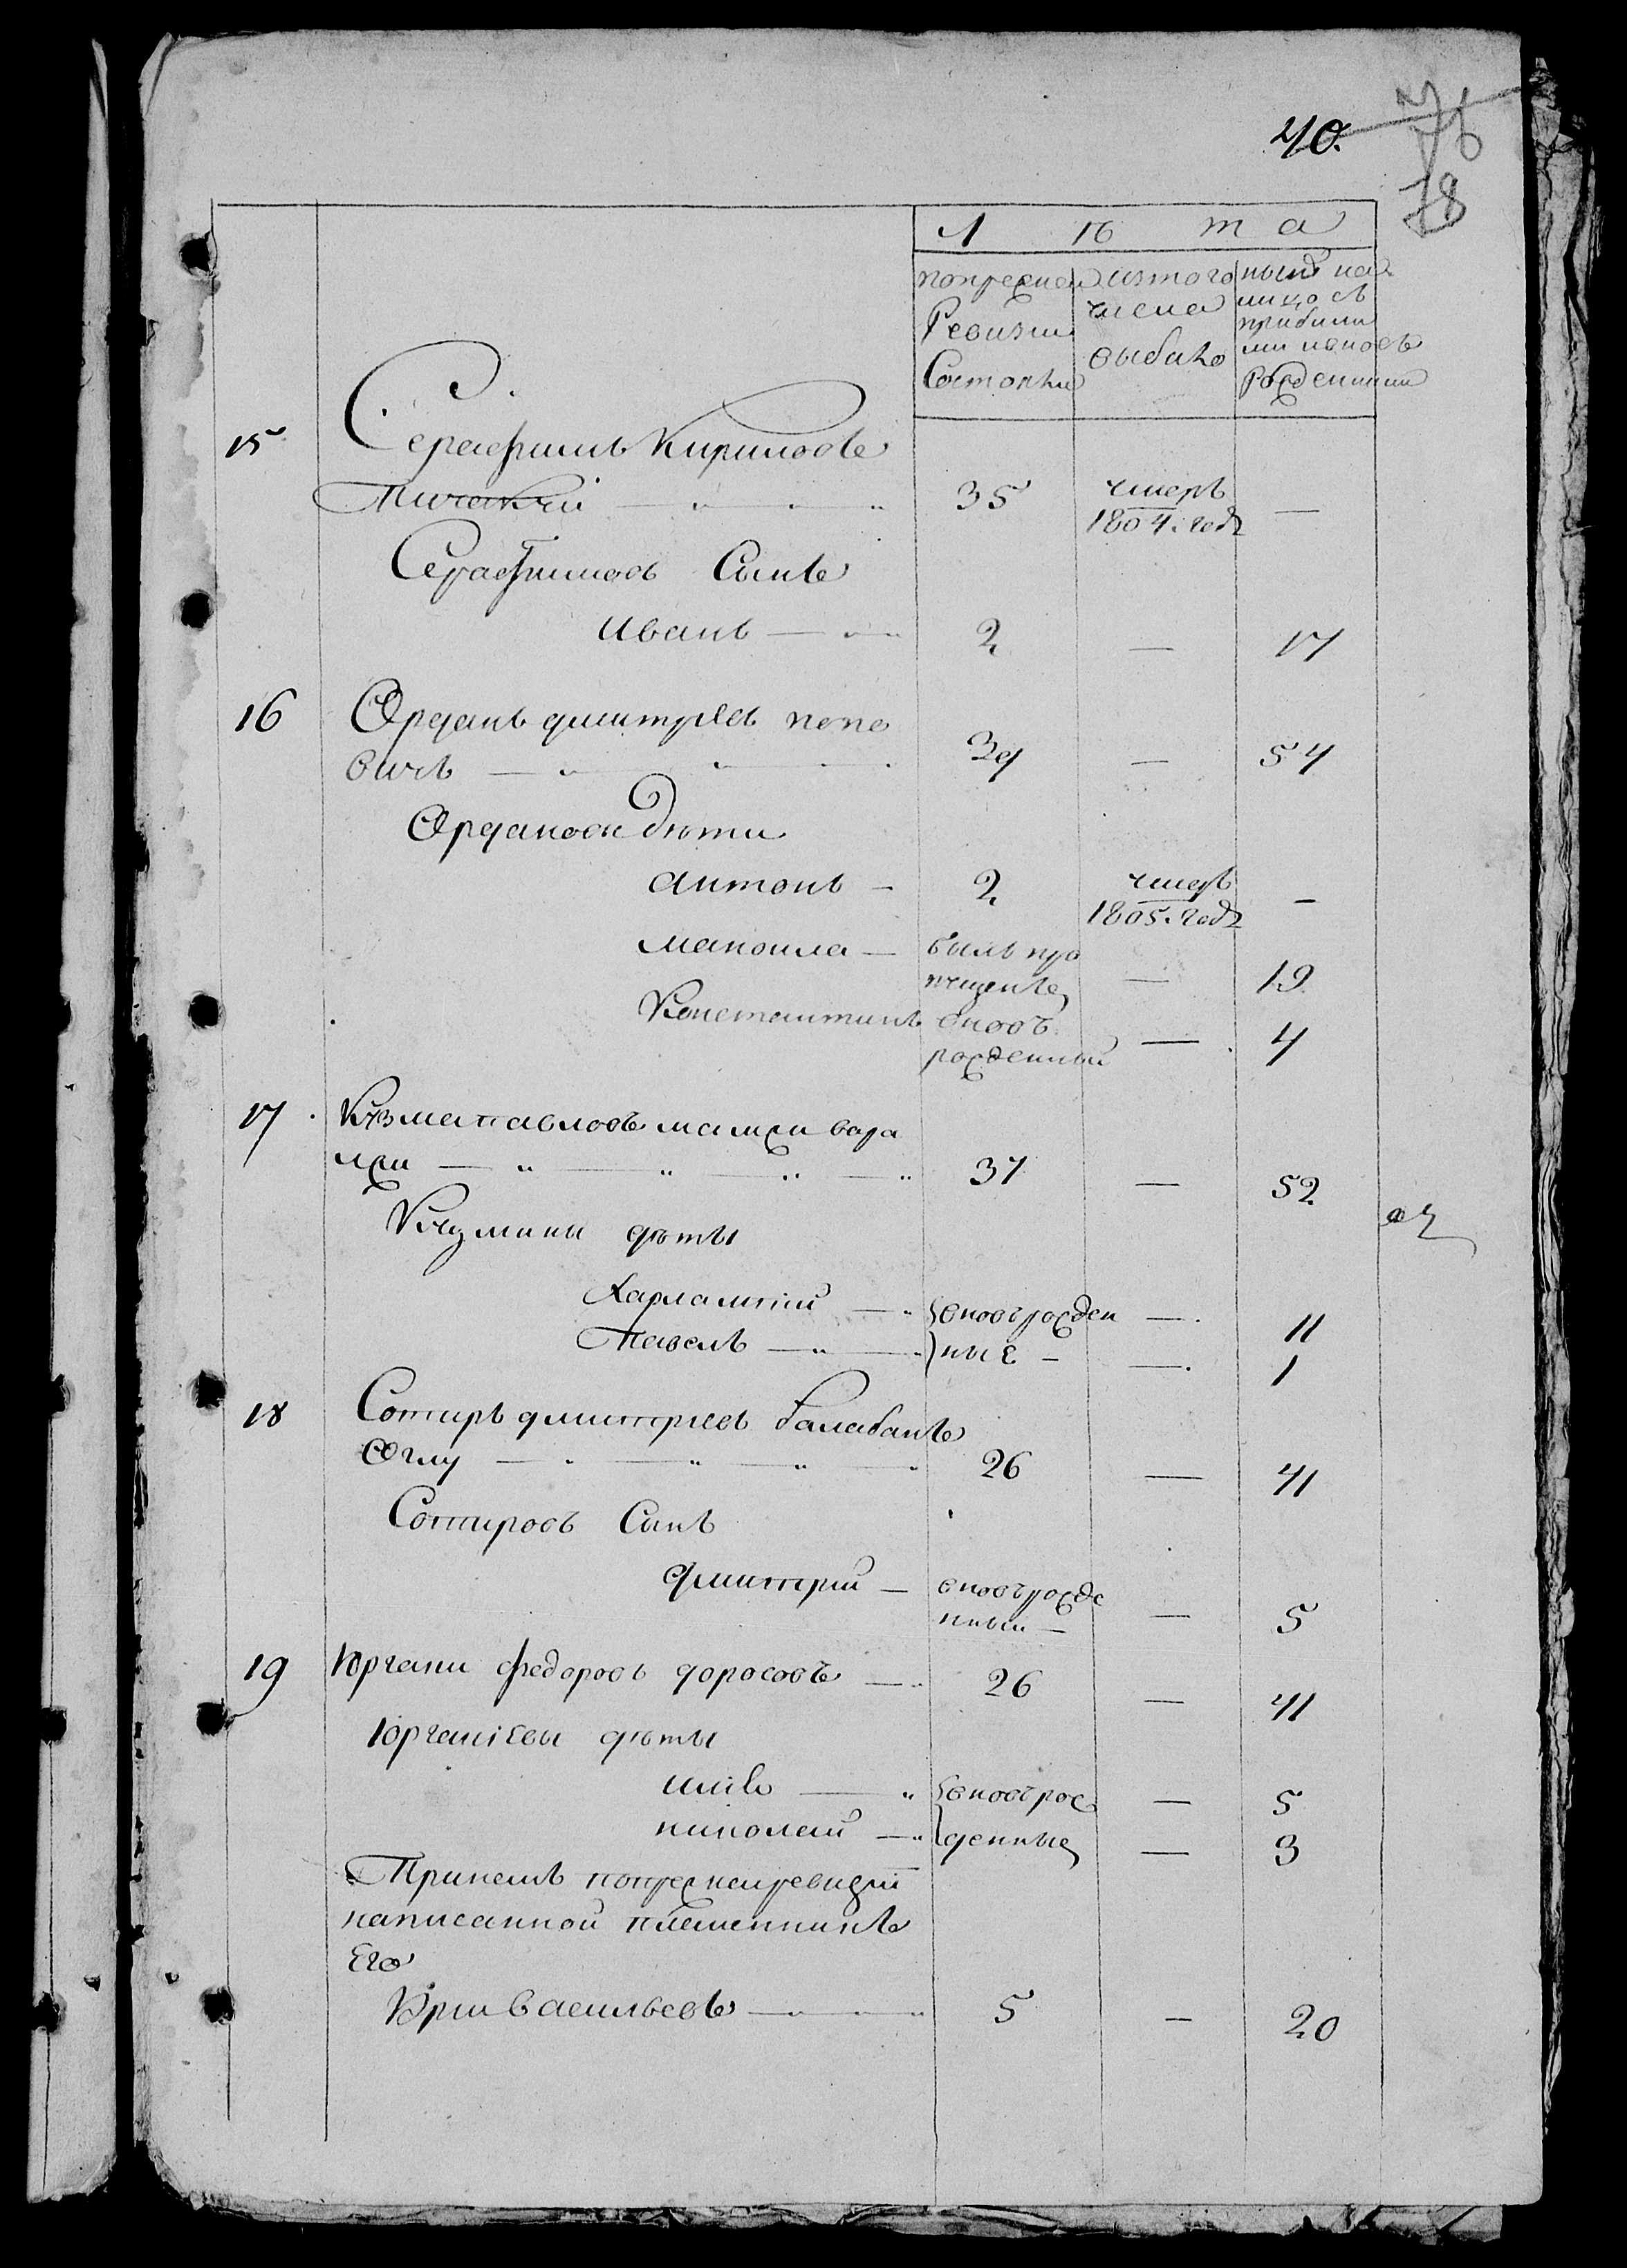 40.
76
78
Л ѣ т а
попрежней Ревизіи Состояли
изтого числа выбыло
нынѣ налицо съ прибылими ивновь Рожденными
15 Серафимъ Кириловъ
Пичакчи — 35 умеръ 1804. года —
Серафимовъ Сынъ
иванъ — 2 — 17
16 Орданъ дмитріевъ попо
вичъ — 39 — 54
Ордановы дѣти
антонъ — 2 умеръ 1805. года —
маноила — былъ про
пущенъ — 19
Константинъ вновъ
рожденный — 4
17 Кузма павловъ
лжи — 37 — 52
Кузмины дѣты
Харлампій — вновърожден — 11
Павелъ — ные — 1
18 Сотиръ дмитріевъ балабанъ
Оглу — 26 — 41
Сотировъ Сынъ
дмитрій — вновърожде
нный — 5
19 Юргани федоровъ доросовъ — 26 — 41
Юрганіевы дѣты
илія — вновърож — 5
николай — денные — 3
Принемъ попрежнейревизіи
написанной племенникъ
Его
Юрии васильевъ — 5 — 20